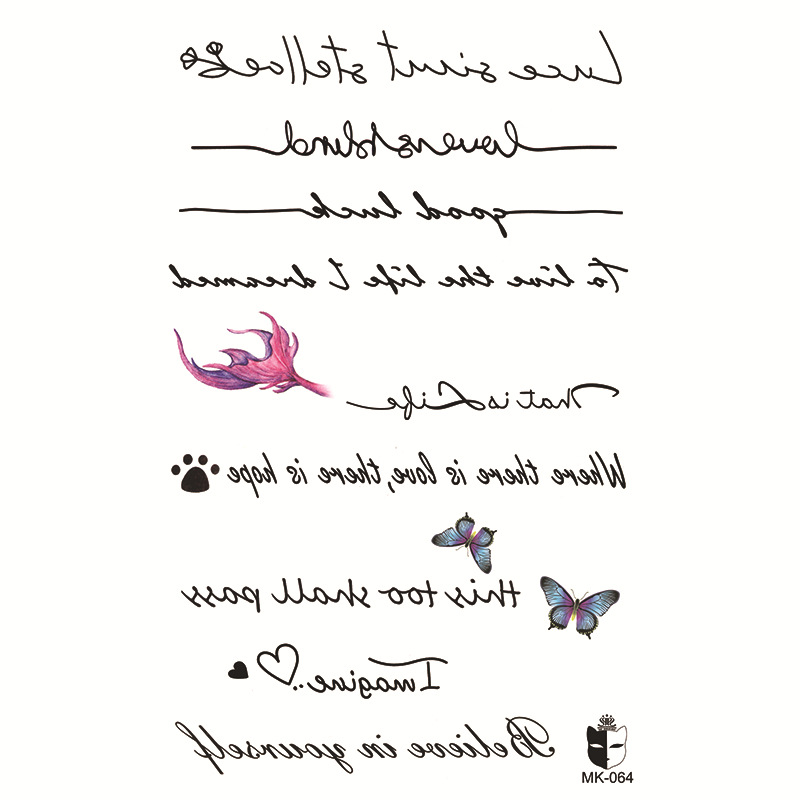 Luce sicut stellae
lovers blind
good luck
To live the life I dreamed
That is Life
Where there is love, there is hope
this too shall pass
Imagine..
Believe in yourself
MK-064